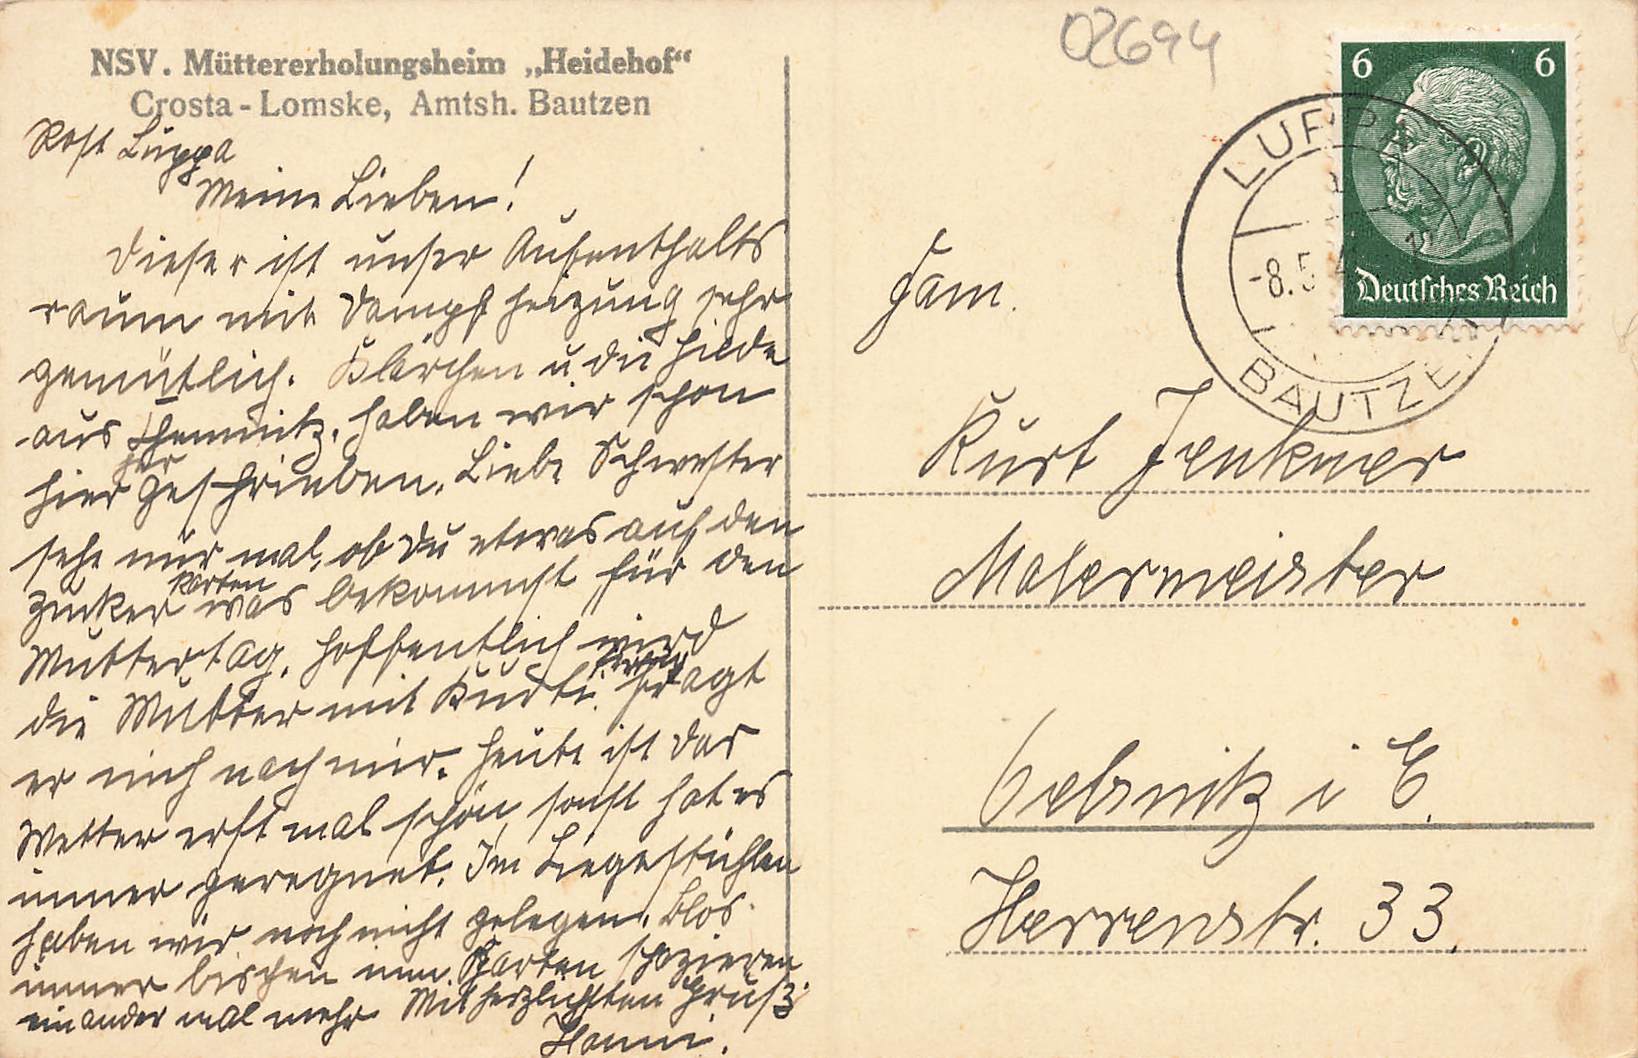 NSV. Müttererholungsheim „Heidehof“
Crosta-Lomske, Amtsh. Bautzen
Post Luppa
Meine Lieben!
Dieser ist unser Aufenthalts
raum mit Dampfheizung sehr
gemütlich. Klärchen u die Hilde
aus Chemnitz. haben wir schon
hier geschrieben. Liebe Schwester
sehe nur mal, ob Du etwas auf den
Zuckerkarten was bekommst für den
Muttertag. Hoffentlich wird
die Mutter mit Kurti fragt
er nich nach mir. Heute ist das
Wetter erst mal schön, sonst hat es
immer geregnet. Im Liegestühlen
haben wir noch nicht gelegen. Blos
immer bischen im Garten spazieren
ein ander mal mehr Mit herzlichsten Gruß
Hanni.
02694
6 6
Deutsches Reich
LUPPA
-8.5.4
BAUTZEN
Fam.
Kurt Jenkner
Malermeister
Sebnitz i E.
Herrenstr. 33.